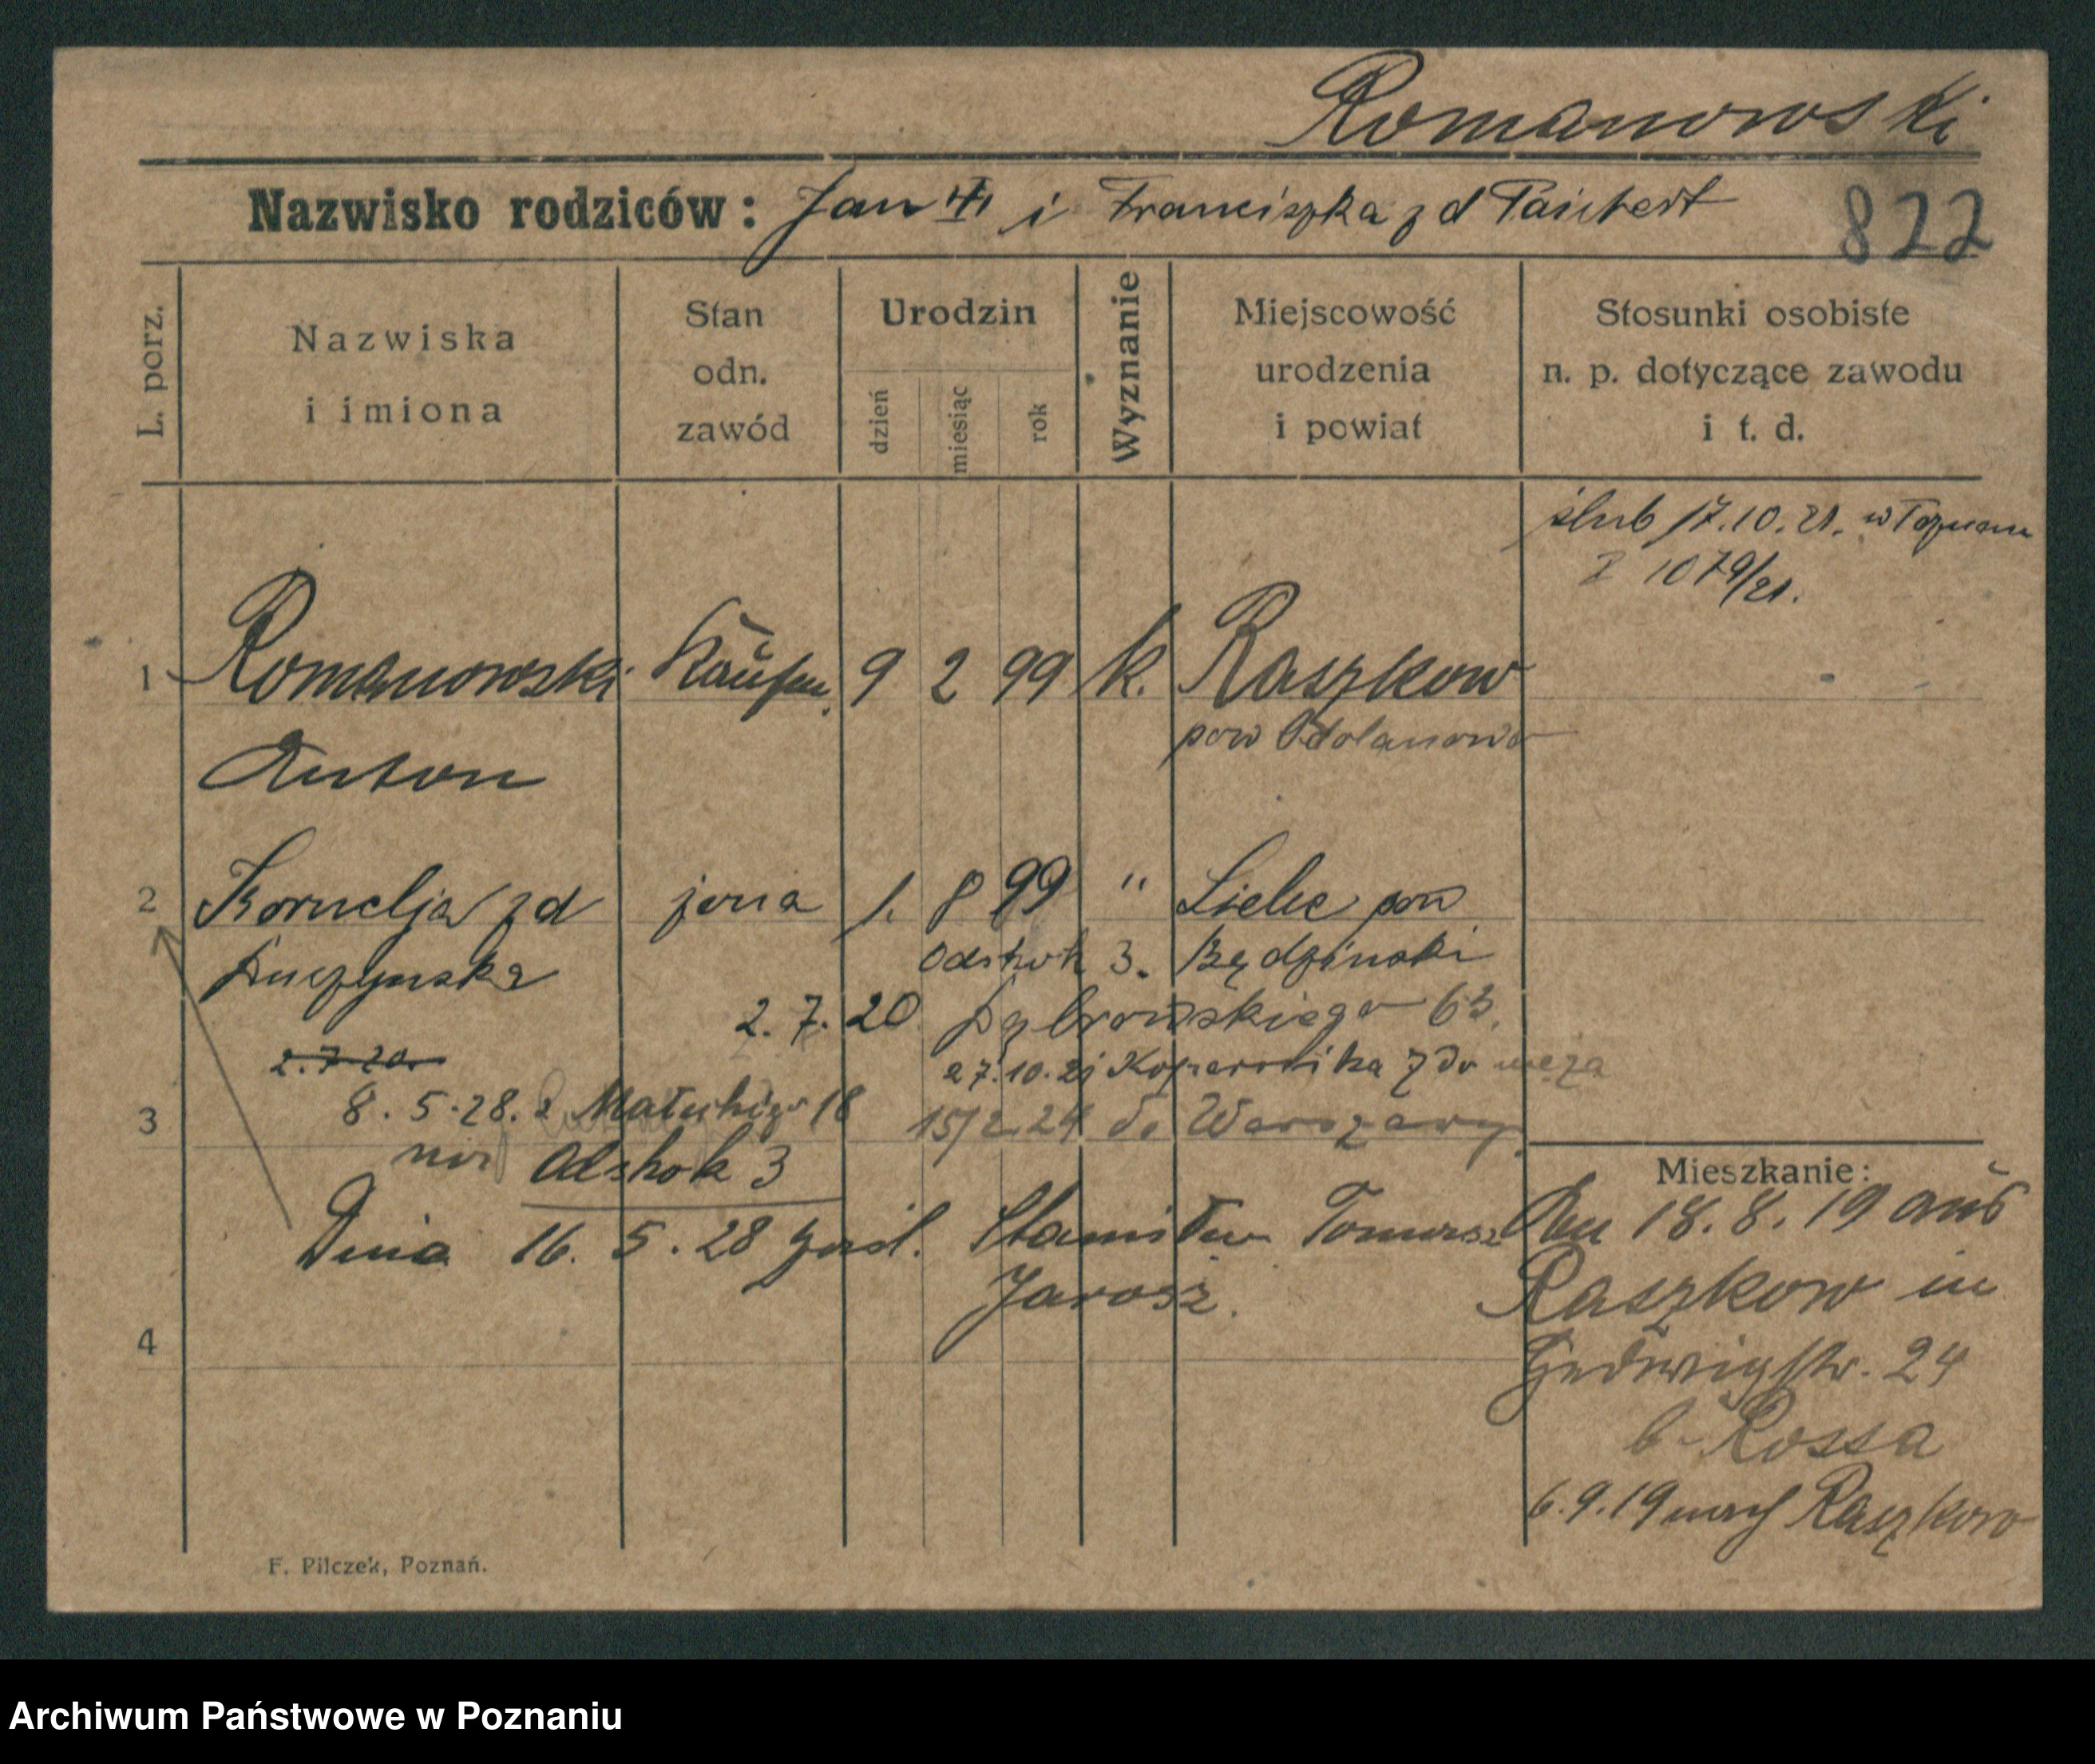 Romanowski
Nazwisko rodziców: Jan i Franciszka z d
822
L. porz.
Nazwiska
i imiona
Stan
odn.
zawód
Urodzin
dzień
miesiąc
rok
Wyznanie
Miejscowość
urodzenia
i powiat
Stosunki osobiste
n. p. dotyczące zawodu
i t. d.
ślub 17.10.21. w
1079/21.
1 Romanowski Kaufm. 9 2 99 k. Raszkow
pow Odolanowo
Anton
2 Kornelja z d żona 1. 8 99 " pow
Odskok 3. Będziński
2.7.20 Dąbrowskiego 63.
2.7.20.
27.10.21 Kopernika 7 do męża
8.5.28. 18
3 15/2.24 do Warszawy
Odskok 3
Mieszkanie:
Dnia 16.5.28 Stanisław Tomasz
Jarosz.
18.8.19 aus
Raszkow in
Hedwigstr. 24
b. Rossa
6.9.19 nach Raszkow
4
F. Pilczek, Poznań.
Archiwum Państwowe w Poznaniu